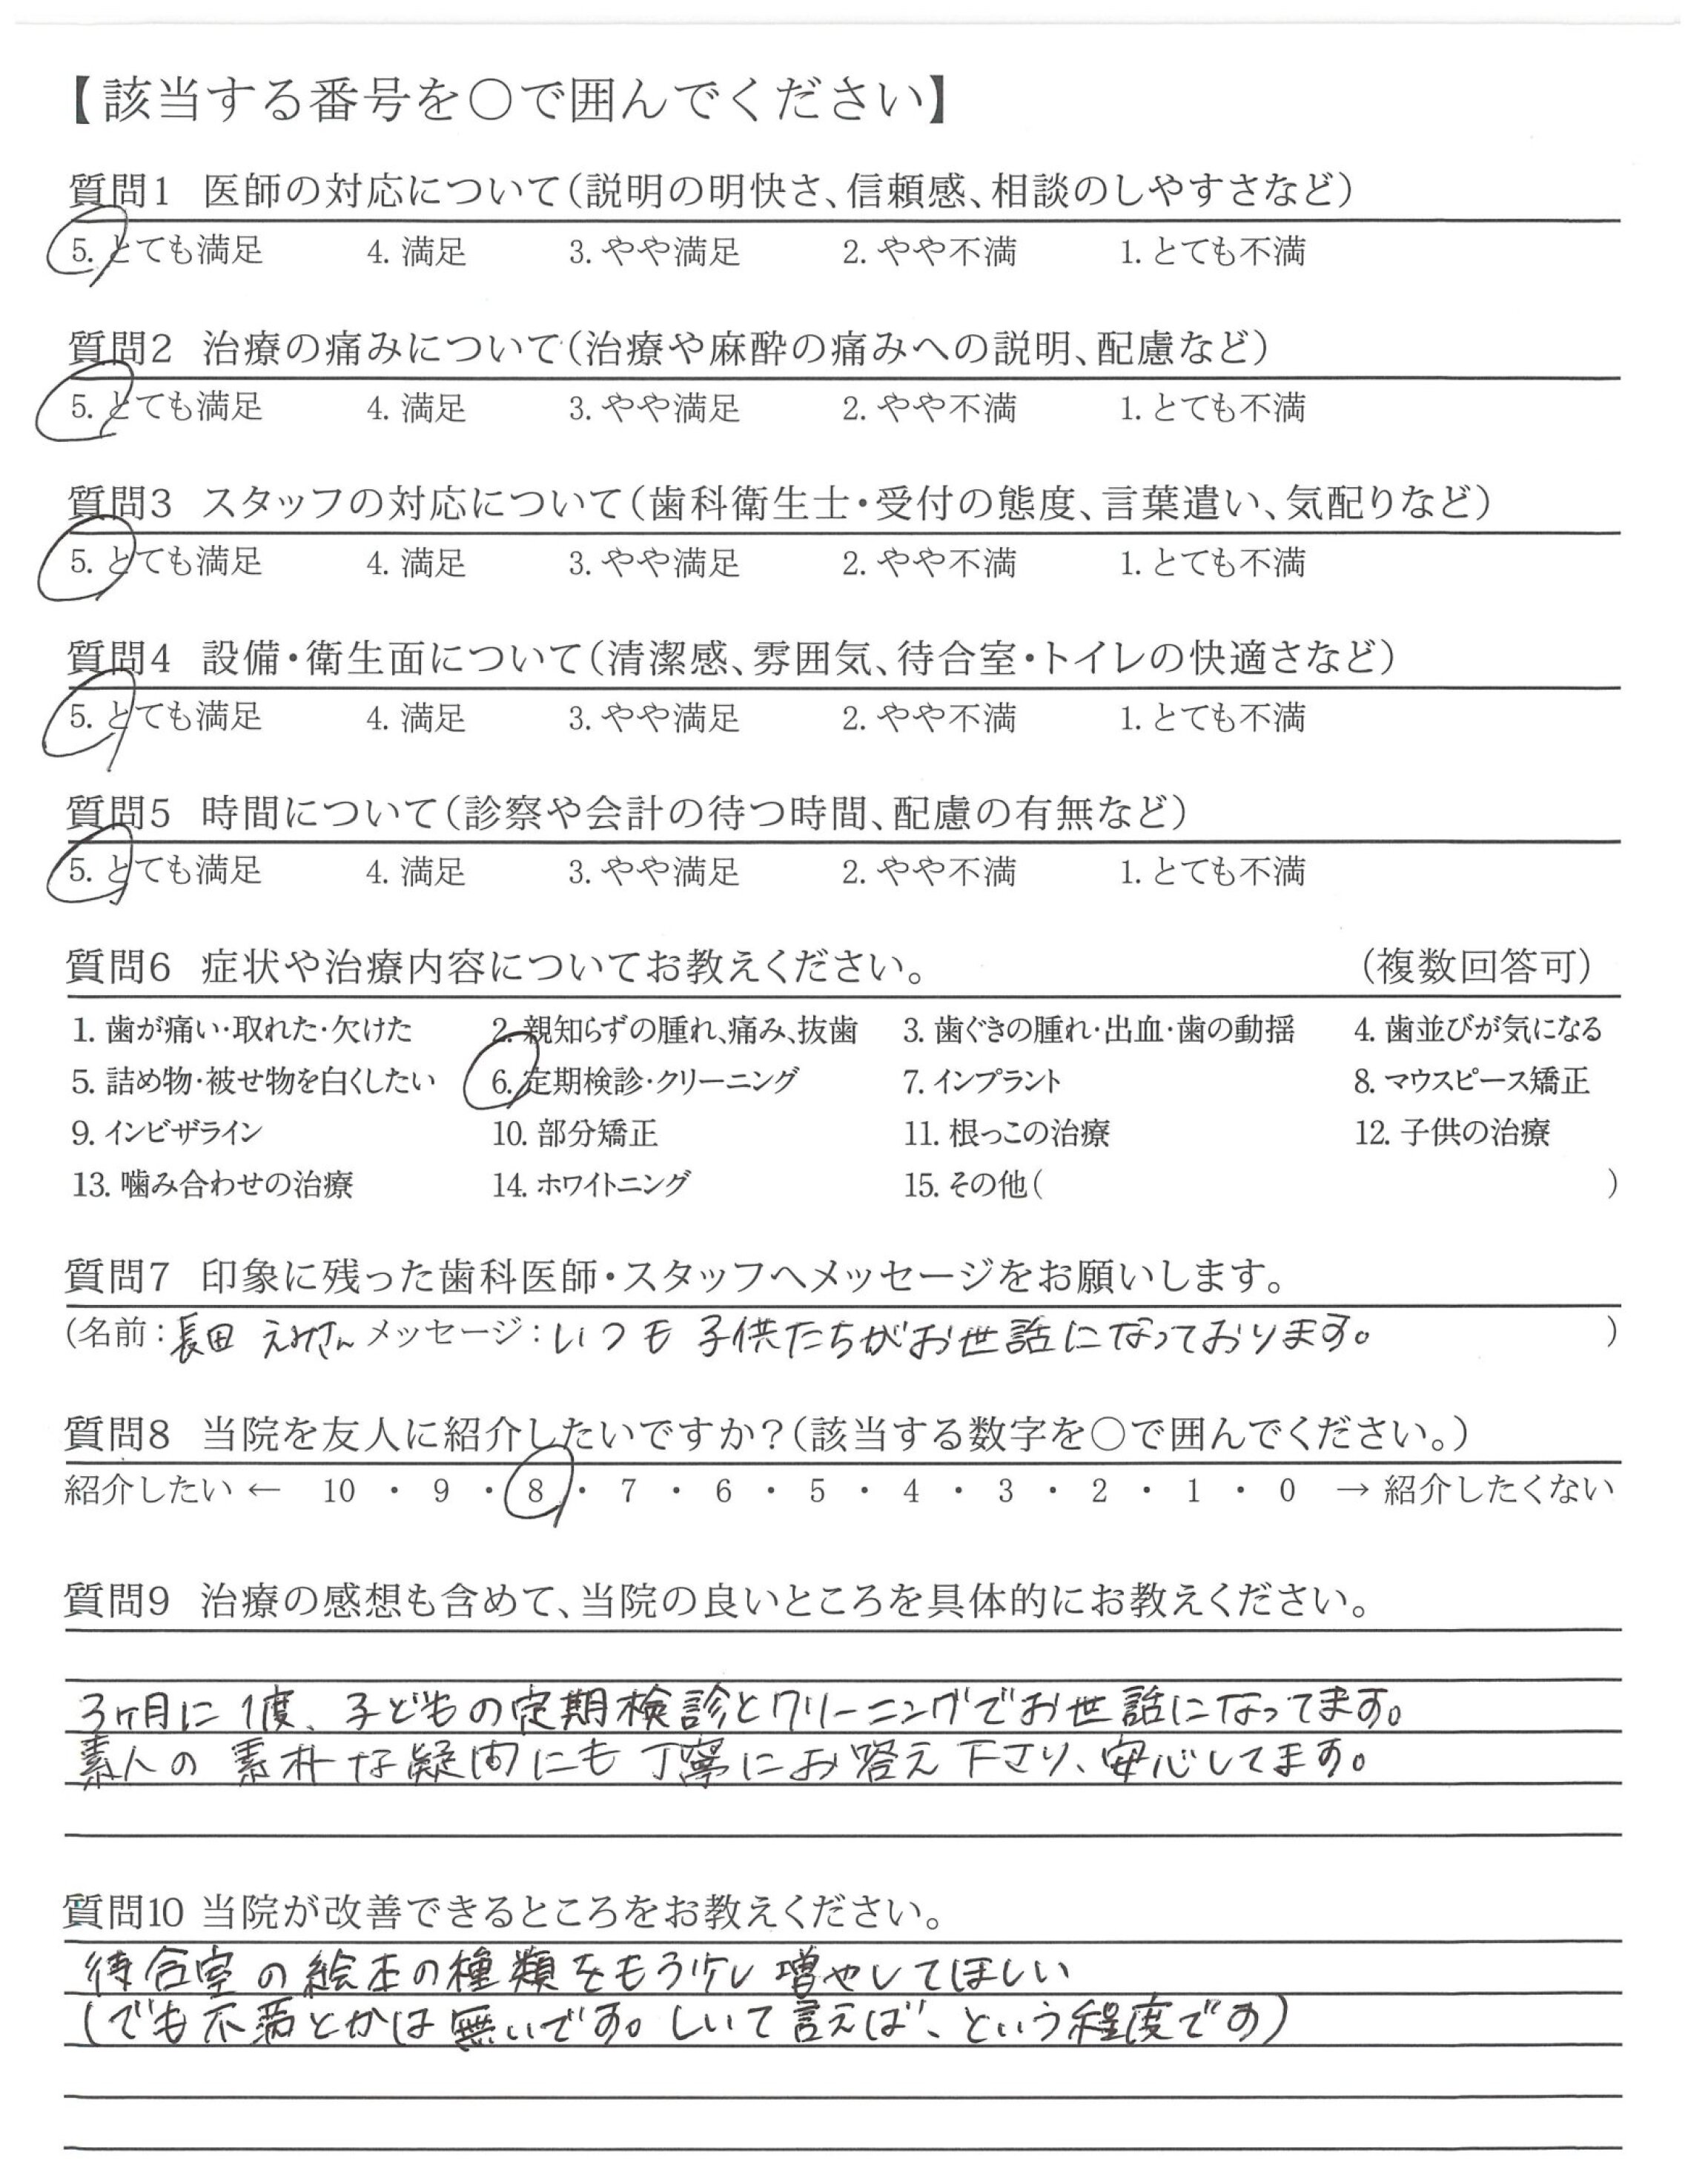 【該当する番号を〇で囲んでください】
質問1 医師の対応について（説明の明快さ、信頼感、相談のしやすさなど）
5. とても満足 4. 満足 3. やや満足 2. やや不満 1. とても不満
質問2 治療の痛みについて（治療や麻酔の痛みへの説明、配慮など）
5. とても満足 4. 満足 3. やや満足 2. やや不満 1. とても不満
質問3 スタッフの対応について（歯科衛生士・受付の態度、言葉遣い、気配りなど）
5. とても満足 4. 満足 3. やや満足 2. やや不満 1. とても不満
質問4 設備・衛生面について（清潔感、雰囲気、待合室・トイレの快適さなど）
5. とても満足 4. 満足 3. やや満足 2. やや不満 1. とても不満
質問5 時間について（診察や会計の待つ時間、配慮の有無など）
5. とても満足 4. 満足 3. やや満足 2. やや不満 1. とても不満
質問6 症状や治療内容についてお教えください。 （複数回答可）
1. 歯が痛い・取れた・欠けた 2. 親知らずの腫れ、痛み、抜歯 3. 歯ぐきの腫れ・出血・歯の動揺 4. 歯並びが気になる
5. 詰め物・被せ物を白くしたい 6. 定期検診・クリーニング 7. インプラント 8. マウスピース矯正
9. インビザライン 10. 部分矯正 11. 根っこの治療 12. 子供の治療
13. 噛み合わせの治療 14. ホワイトニング 15. その他（ ）
質問7 印象に残った歯科医師・スタッフへメッセージをお願いします。
（名前：長田 えみさん メッセージ：いつも子供たちがお世話になっております。 ）
質問8 当院を友人に紹介したいですか？（該当する数字を〇で囲んでください。）
紹介したい ← 10 ・ 9 ・ 8 ・ 7 ・ 6 ・ 5 ・ 4 ・ 3 ・ 2 ・ 1 ・ 0 → 紹介したくない
質問9 治療の感想も含めて、当院の良いところを具体的にお教えください。
3ヶ月に1度、子どもの定期検診とクリーニングでお世話になってます。
素人の素朴な疑問にも丁寧にお答え下さり、安心してます。
質問10 当院が改善できるところをお教えください。
待合室の絵本の種類をもう少し増やしてほしい
（でも不満とかは無いです。しいて言えば、という程度です）